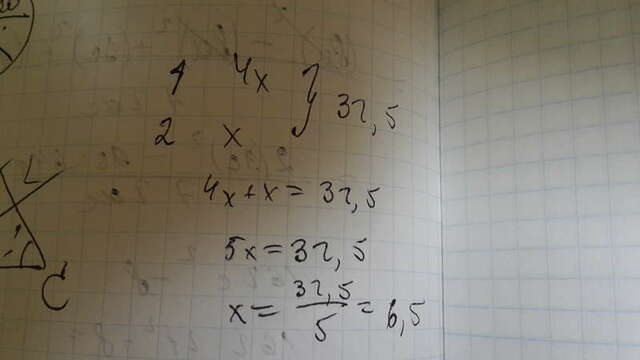 1 4x } 32,5
2 x
4x + x = 32,5
5x = 32,5
x = 32,5/5 = 6,5
L
C